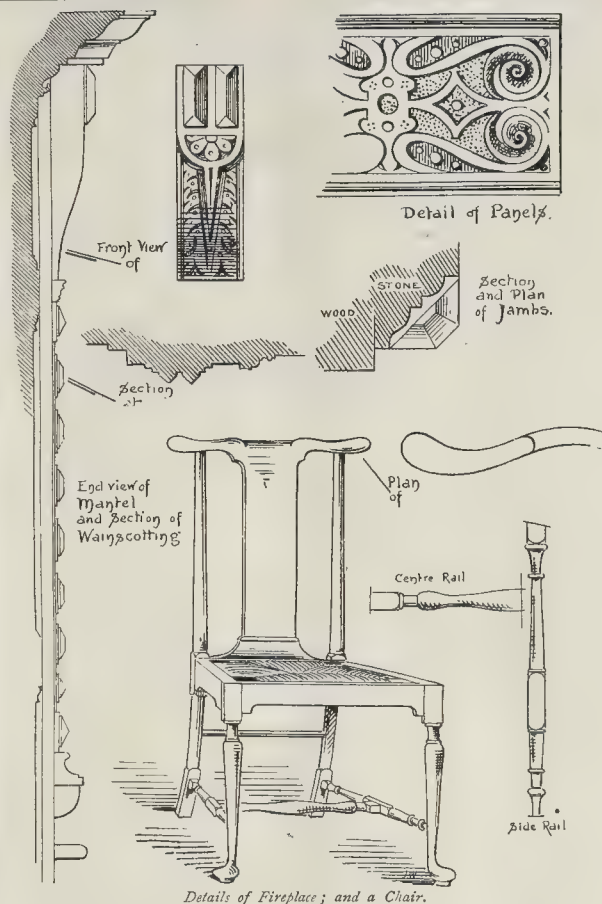 Detail of Panels.
Front View
of
STONE
WOOD
Section
and Plan
of Jambs.
Section
at
End view of
Mantel
and Section of
Wainscotting
Plan
of
Centre Rail
Side Rail
Details of Fireplace; and a Chair.